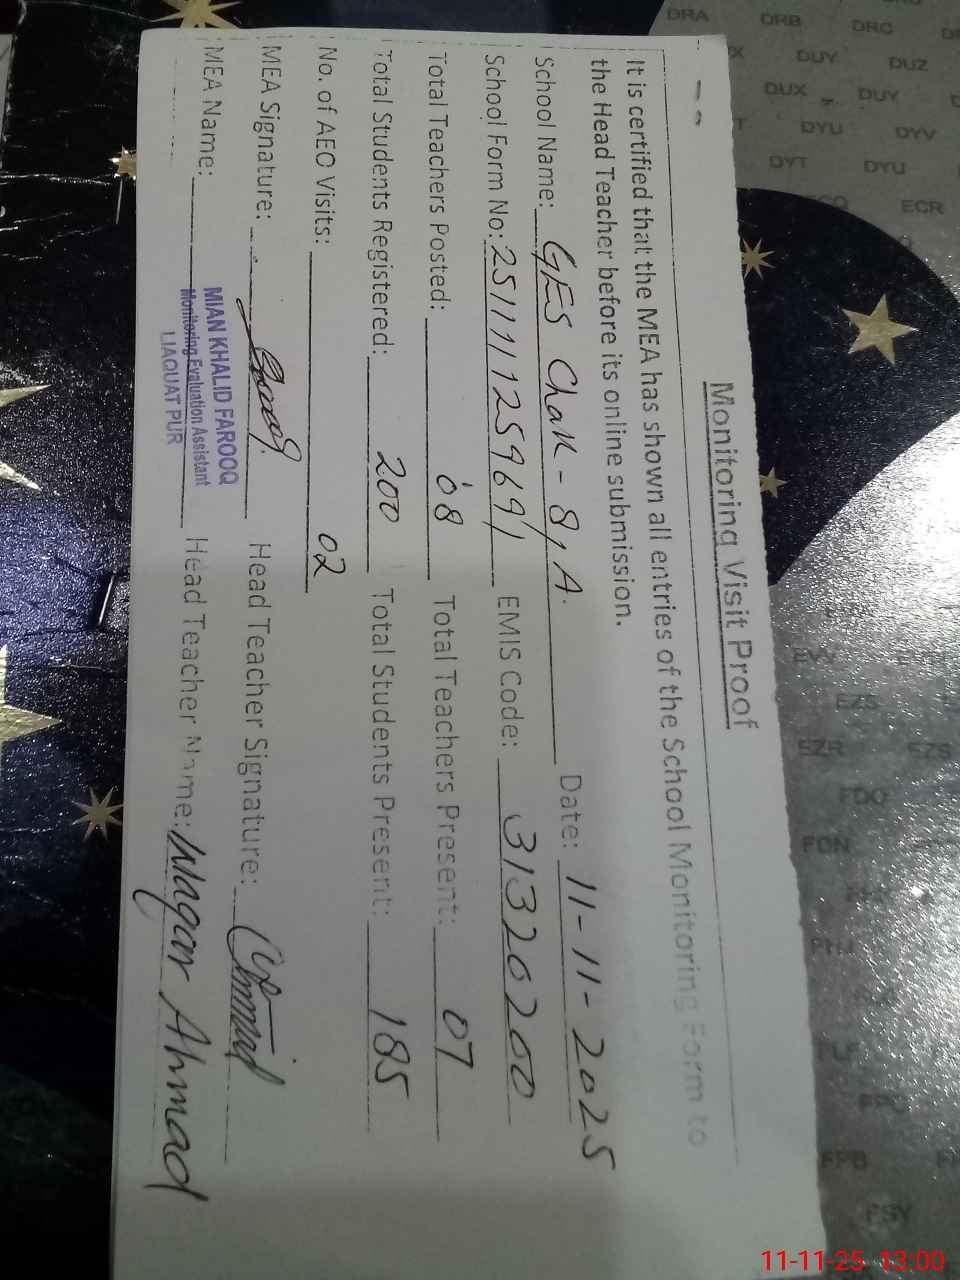 Monitoring Visit Proof
It is certified that the MEA has shown all entries of the School Monitoring Form to
the Head Teacher before its online submission.
School Name: GES Chak - 8/A. Date: 11-11-2025
School Form No: EMIS Code: 31320200
Total Teachers Posted: 08 Total Teachers Present: 07
Total Students Registered: 200 Total Students Present: 185
No. of AEO Visits: 02
MEA Signature: Head Teacher Signature:
MEA Name: MIAN KHALID FAROOQ Head Teacher Name: Waqar Ahmad
Monitoring Evaluation Assistant
LIAQUAT PUR
DRA DRB DRC
DUY DUZ
DUX DUY
DYU DYV
DYT DYU
ECR
EZS
EZR EZS
FDQ
FDN
11-11-25 13:00